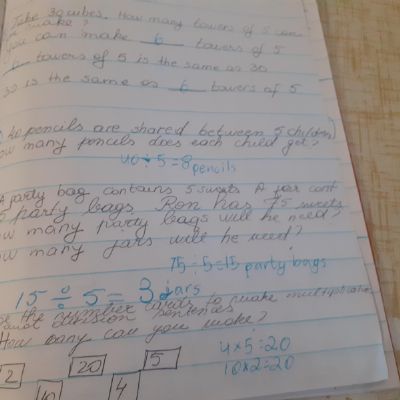 Take 30 cubes. How many towers of 5 can
you make?
You can make 6 towers of 5
6 towers of 5 is the same as 30
30 is the same as 6 towers of 5
40 pencils are shared between 5 children
How many pencils does each child get?
40 ÷ 5 = 8 pencils
A party bag contains 5 sweets A jar cont
5 party bags. Ron has 75 sweets
How many party bags will he need?
How many jars will he need?
75 ÷ 5 = 15 party bags
15 ÷ 5 = 3 jars
the number cards to make multiplication
and division sentences
How many can you make?
4 x 5 = 20
10 x 2 = 20
2
20
5
10
4